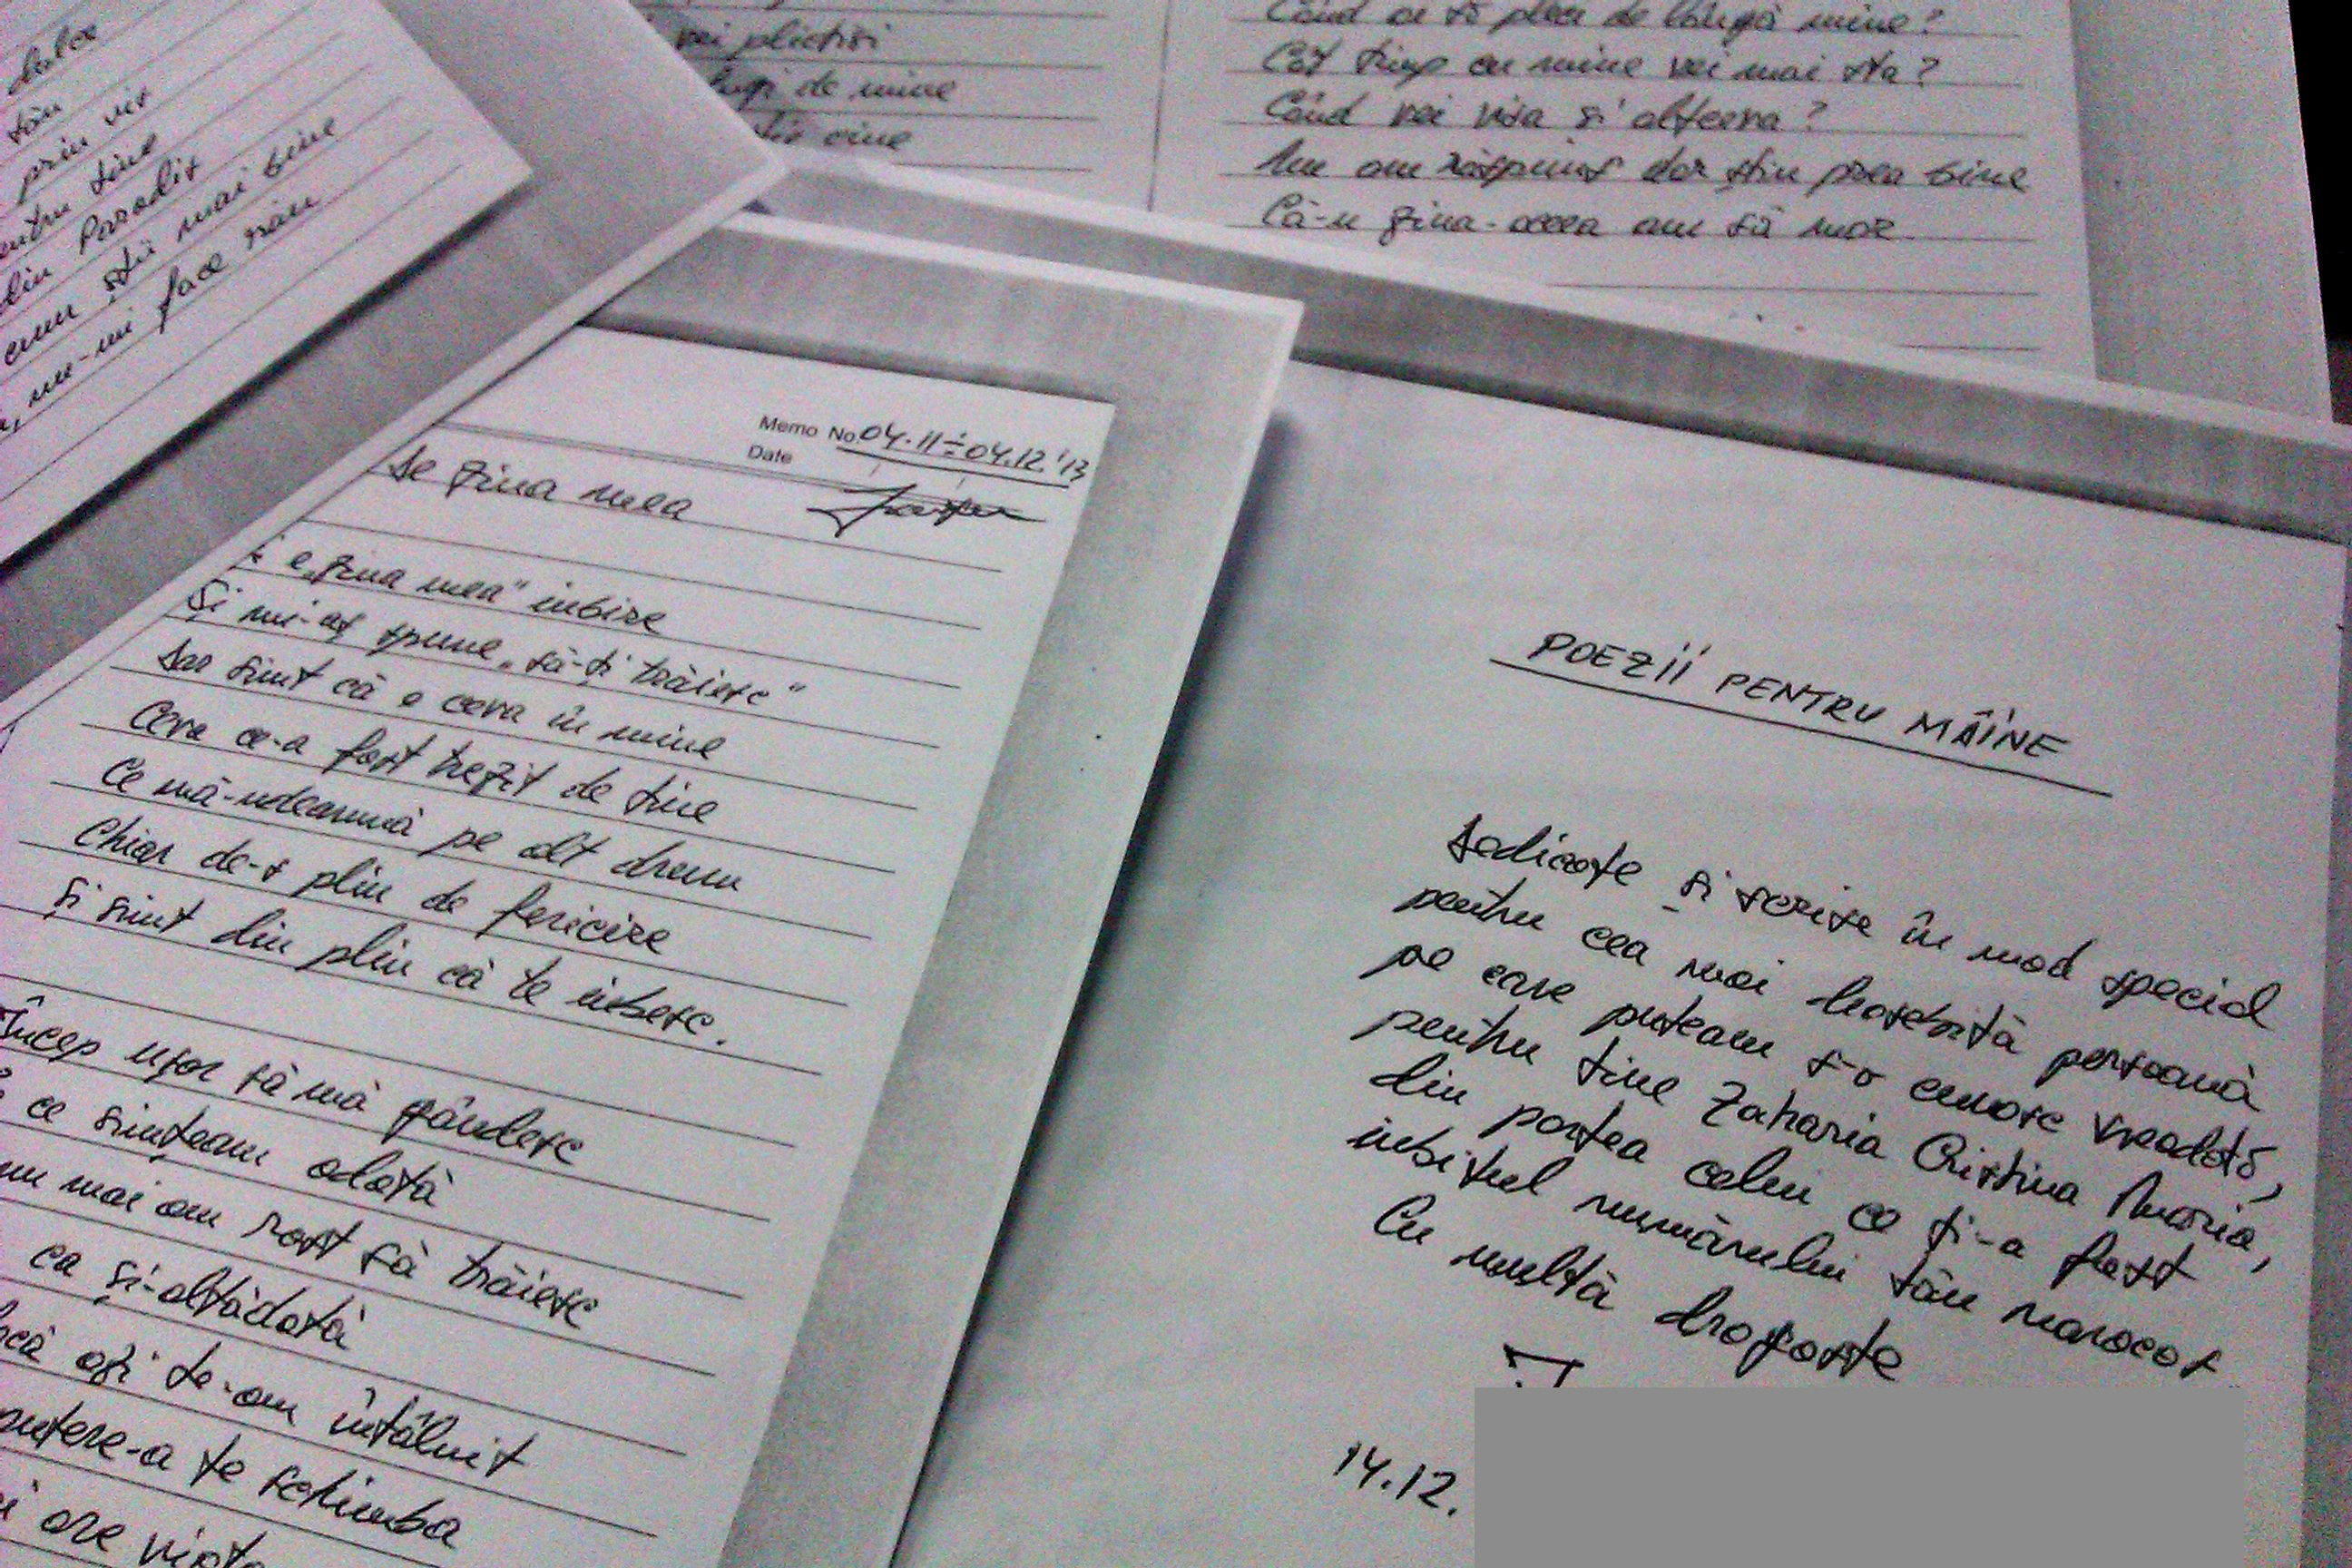 dulce
tău
prin vis
tine
din Paradis
cum știi mai bine
ne-mi face rău
vei plictisi
fugi de mine
cine
Când ai să pleci de lângă mine?
Cât timp cu mine vei mai sta?
Când vei visa și altceva?
Nu am răspuns dar știu prea bine
Că-n ziua-aceea am să mor
Memo No. 04.11÷04.12.'13
Date
De ziua mea
e „ziua mea" iubire
Și mi-aș spune „să-ți trăiesc"
Dar simt că e ceva în mine
Ceva ce-a fost trezit de tine
Ce mă-ndeamnă pe alt drum
Chiar de-s plin de fericire
Și simt din plin că te iubesc.
Încep ușor să mă gândesc
ce simțeam odată
nu mai am rost să trăiesc
ca și-altădată
azi te-am întâlnit
putere-a te schimba
are viața
POEZII PENTRU MÂINE
Dedicate și scrise în mod special
pentru cea mai deosebită persoană
pe care puteam s-o cunosc vreodată,
pentru tine Zaharia Cristina Maria,
din partea celui ce ți-a fost
iubitul numărului tău norocos
Cu multă dragoste
14.12.